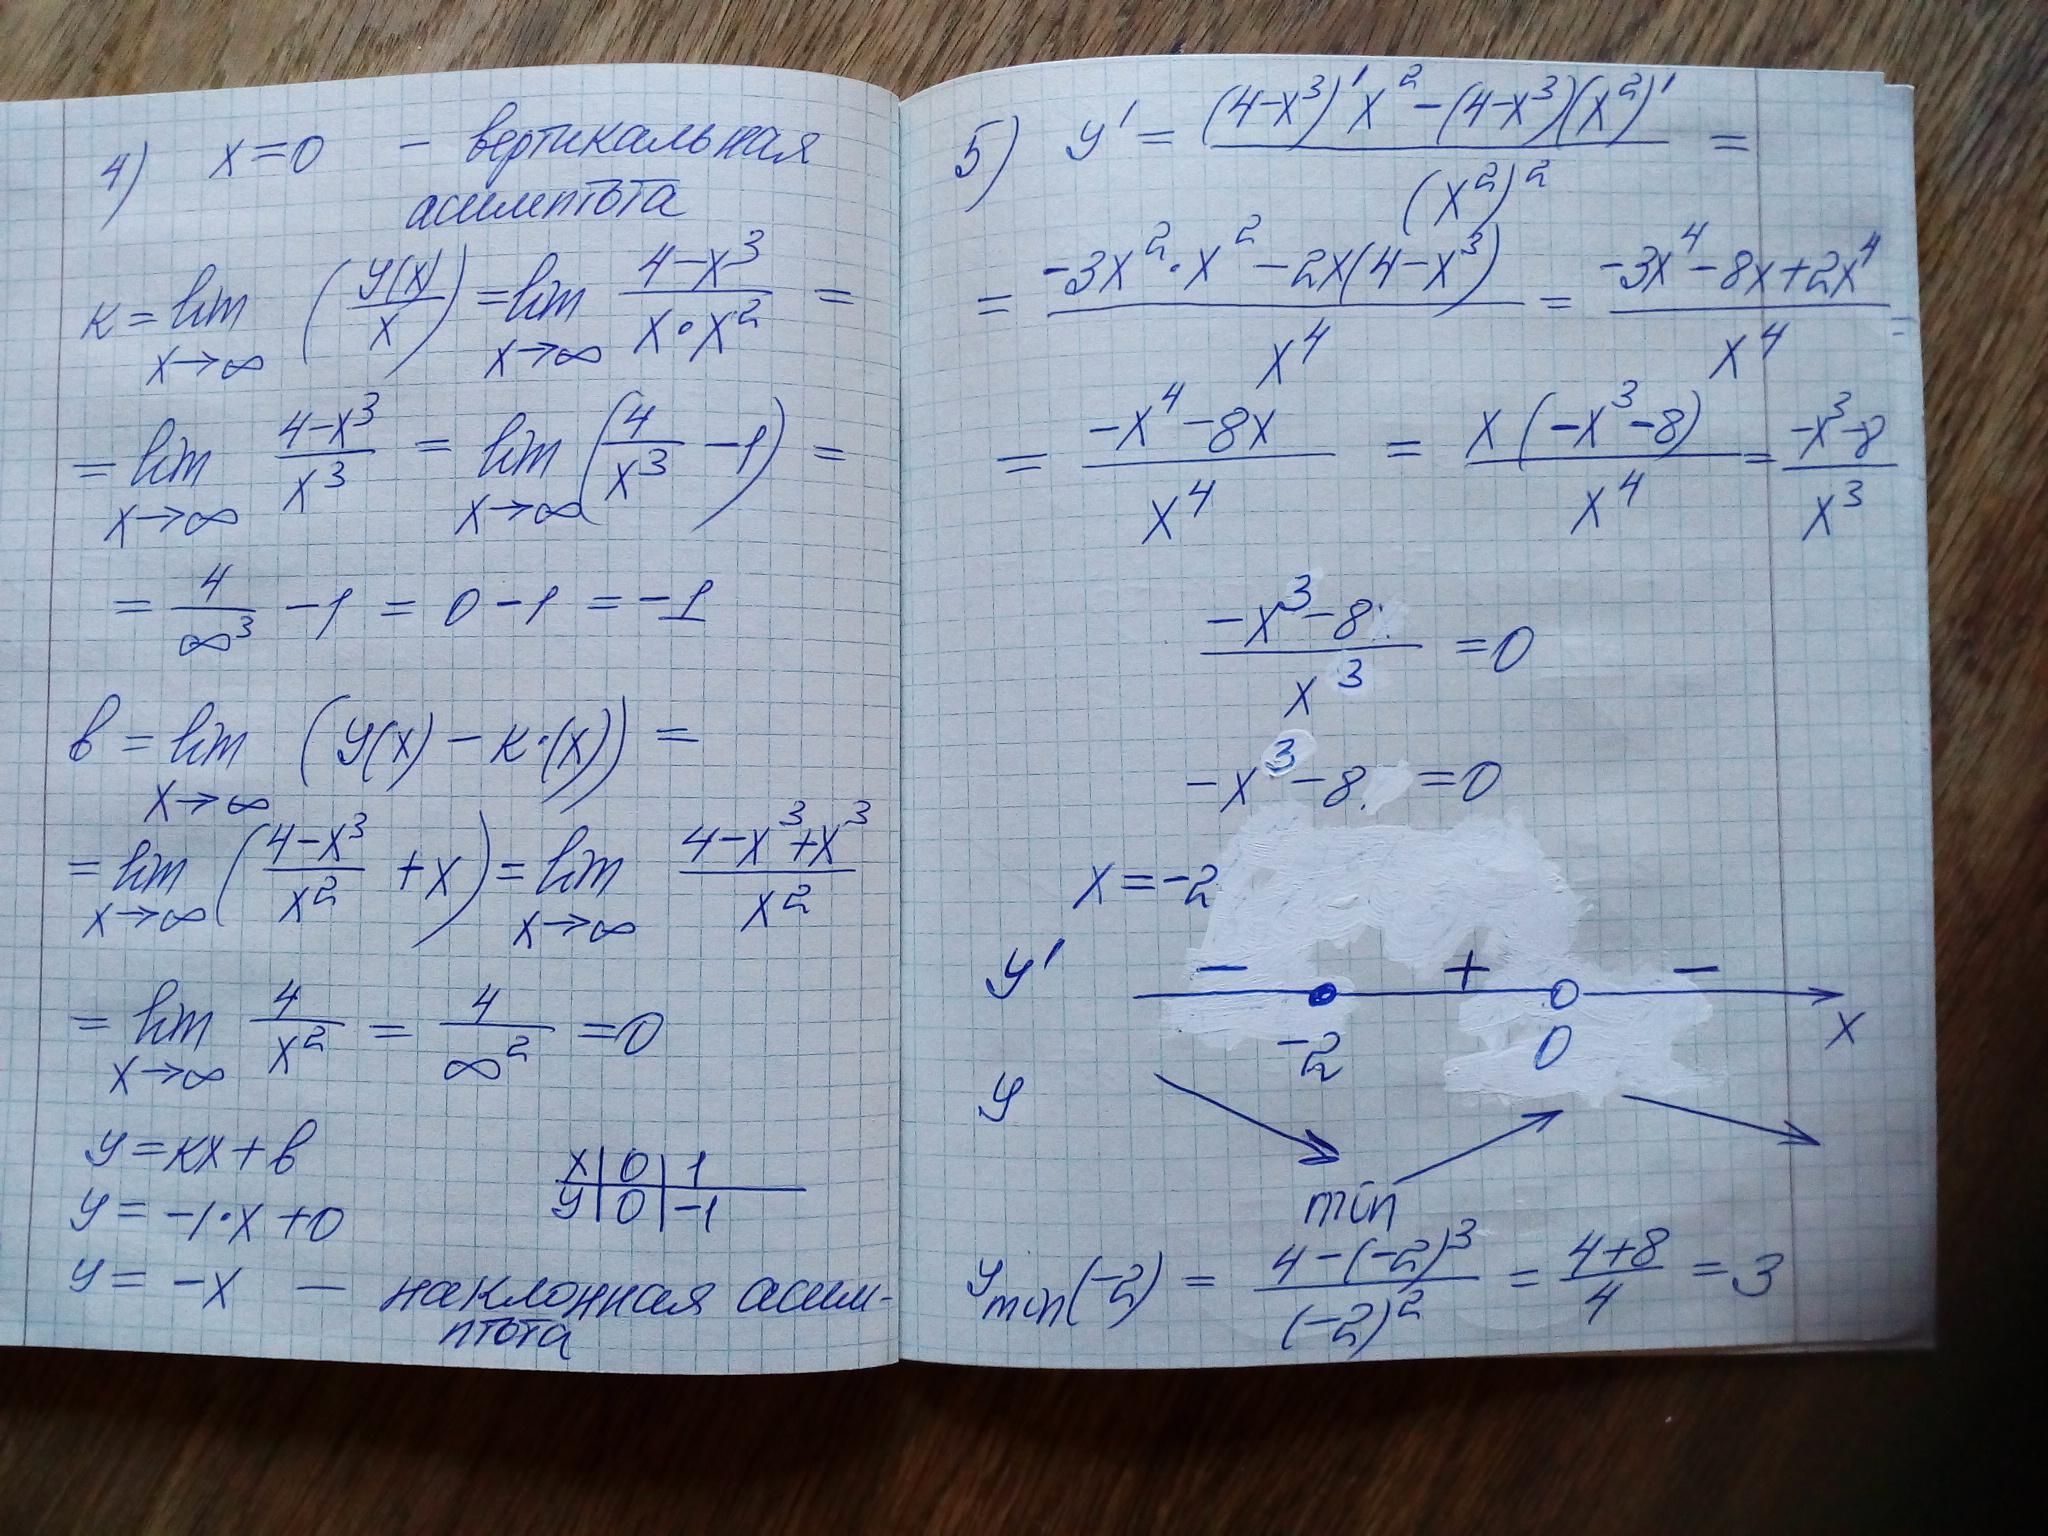 4) x=0 – вертикальная
асимптота
к = lim x→∞ (y(x)/x) = lim x→∞ (4-x³)/(x·x²) =
= lim x→∞ (4-x³)/x³ = lim x→∞ (4/x³ - 1) =
= 4/∞³ - 1 = 0 - 1 = -1
в = lim x→∞ (y(x) - к·(x)) =
= lim x→∞ ((4-x³)/x² + x) = lim x→∞ (4-x³+x³)/x²
= lim x→∞ 4/x² = 4/∞² = 0
y = кx + в
y = -1·x + 0
x | 0 | 1
y | 0 | -1
y = -x — наклонная асим-
птота
5) y' = ((4-x³)'x² - (4-x³)(x²)')/(x²)² =
= (-3x²·x² - 2x(4-x³))/x⁴ = (-3x⁴-8x+2x⁴)/x⁴ =
= (-x⁴-8x)/x⁴ = x(-x³-8)/x⁴ = (-x³-8)/x³
(-x³-8)/x³ = 0
-x³-8 = 0
x = -2
y' − + −
-2 0 x
y
min
y min(-2) = (4-(-2)³)/(-2)² = (4+8)/4 = 3